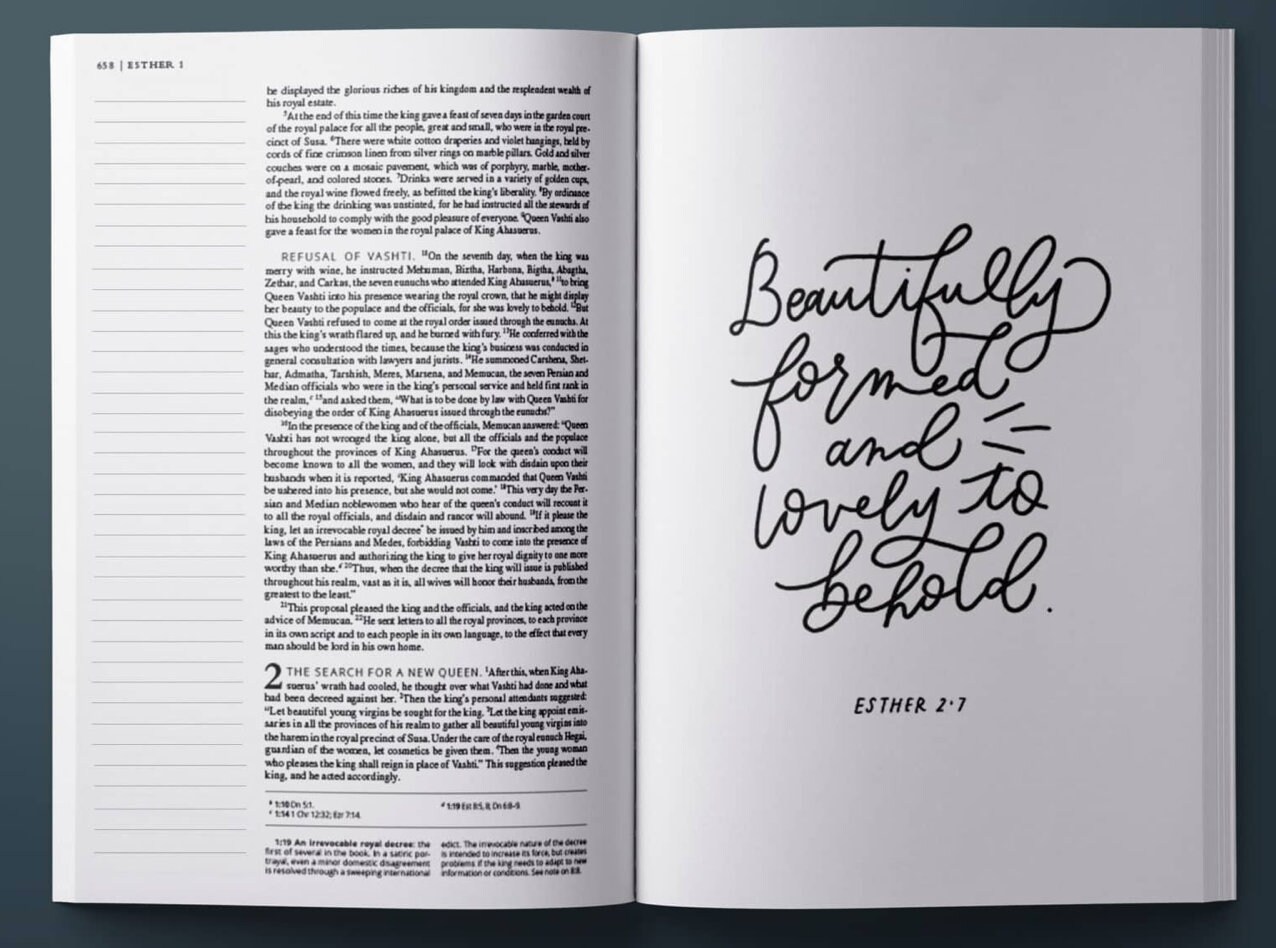 658 | ESTHER 1
he displayed the glorious riches of his kingdom and the resplendent wealth of
his royal estate.
⁵At the end of this time the king gave a feast of seven days in the garden court
of the royal palace for all the people, great and small, who were in the royal pre-
cinct of Susa. ⁶There were white cotton draperies and violet hangings, held by
cords of fine crimson linen from silver rings on marble pillars. Gold and silver
couches were on a mosaic pavement, which was of porphyry, marble, mother-
of-pearl, and colored stones. ⁷Drinks were served in a variety of golden cups,
and the royal wine flowed freely, as befitted the king's liberality. ⁸By ordinance
of the king the drinking was unstinted, for he had instructed all the stewards of
his household to comply with the good pleasure of everyone. ⁹Queen Vashti also
gave a feast for the women in the royal palace of King Ahasuerus.
REFUSAL OF VASHTI. ¹⁰On the seventh day, when the king was
merry with wine, he instructed Mehuman, Biztha, Harbona, Bigtha, Abagtha,
Zethar, and Carkas, the seven eunuchs who attended King Ahasuerus,ᵇ ¹¹to bring
Queen Vashti into his presence wearing the royal crown, that he might display
her beauty to the populace and the officials, for she was lovely to behold. ¹²But
Queen Vashti refused to come at the royal order issued through the eunuchs. At
this the king's wrath flared up, and he burned with fury. ¹³He conferred with the
sages who understood the times, because the king's business was conducted in
general consultation with lawyers and jurists. ¹⁴He summoned Carshena, Shet-
har, Admatha, Tarshish, Meres, Marsena, and Memucan, the seven Persian and
Median officials who were in the king's personal service and held first rank in
the realm,ᶜ ¹⁵and asked them, “What is to be done by law with Queen Vashti for
disobeying the order of King Ahasuerus issued through the eunuchs?”
¹⁶In the presence of the king and of the officials, Memucan answered: “Queen
Vashti has not wronged the king alone, but all the officials and the populace
throughout the provinces of King Ahasuerus. ¹⁷For the queen's conduct will
become known to all the women, and they will look with disdain upon their
husbands when it is reported, ‘King Ahasuerus commanded that Queen Vashti
be ushered into his presence, but she would not come.’ ¹⁸This very day the Per-
sian and Median noblewomen who hear of the queen's conduct will recount it
to all the royal officials, and disdain and rancor will abound. ¹⁹If it please the
king, let an irrevocable royal decree* be issued by him and inscribed among the
laws of the Persians and Medes, forbidding Vashti to come into the presence of
King Ahasuerus and authorizing the king to give her royal dignity to one more
worthy than she.ᵈ ²⁰Thus, when the decree that the king will issue is published
throughout his realm, vast as it is, all wives will honor their husbands, from the
greatest to the least.”
²¹This proposal pleased the king and the officials, and the king acted on the
advice of Memucan. ²²He sent letters to all the royal provinces, to each province
in its own script and to each people in its own language, to the effect that every
man should be lord in his own home.
2 THE SEARCH FOR A NEW QUEEN. ¹After this, when King Aha-
suerus' wrath had cooled, he thought over what Vashti had done and what
had been decreed against her. ²Then the king's personal attendants suggested:
“Let beautiful young virgins be sought for the king. ³Let the king appoint emis-
saries in all the provinces of his realm to gather all beautiful young virgins into
the harem in the royal precinct of Susa. Under the care of the royal eunuch Hegai,
guardian of the women, let cosmetics be given them. ⁴Then the young woman
who pleases the king shall reign in place of Vashti.” This suggestion pleased the
king, and he acted accordingly.
ᵇ 1:10 Dn 5:1.
ᶜ 1:14 1 Chr 12:32; Ezr 7:14.
ᵈ 1:19 Est 8:5, 8; Dn 6:8–9.
1:19 An irrevocable royal decree: the
first of several in the book. In a satiric por-
trayal, even a minor domestic disagreement
is resolved through a sweeping international
edict. The irrevocable nature of the decree
is intended to increase its force, but creates
problems if the king needs to adapt to new
information or conditions. See note on 8:8.
Beautifully
formed
and
lovely to
behold.
ESTHER 2·7